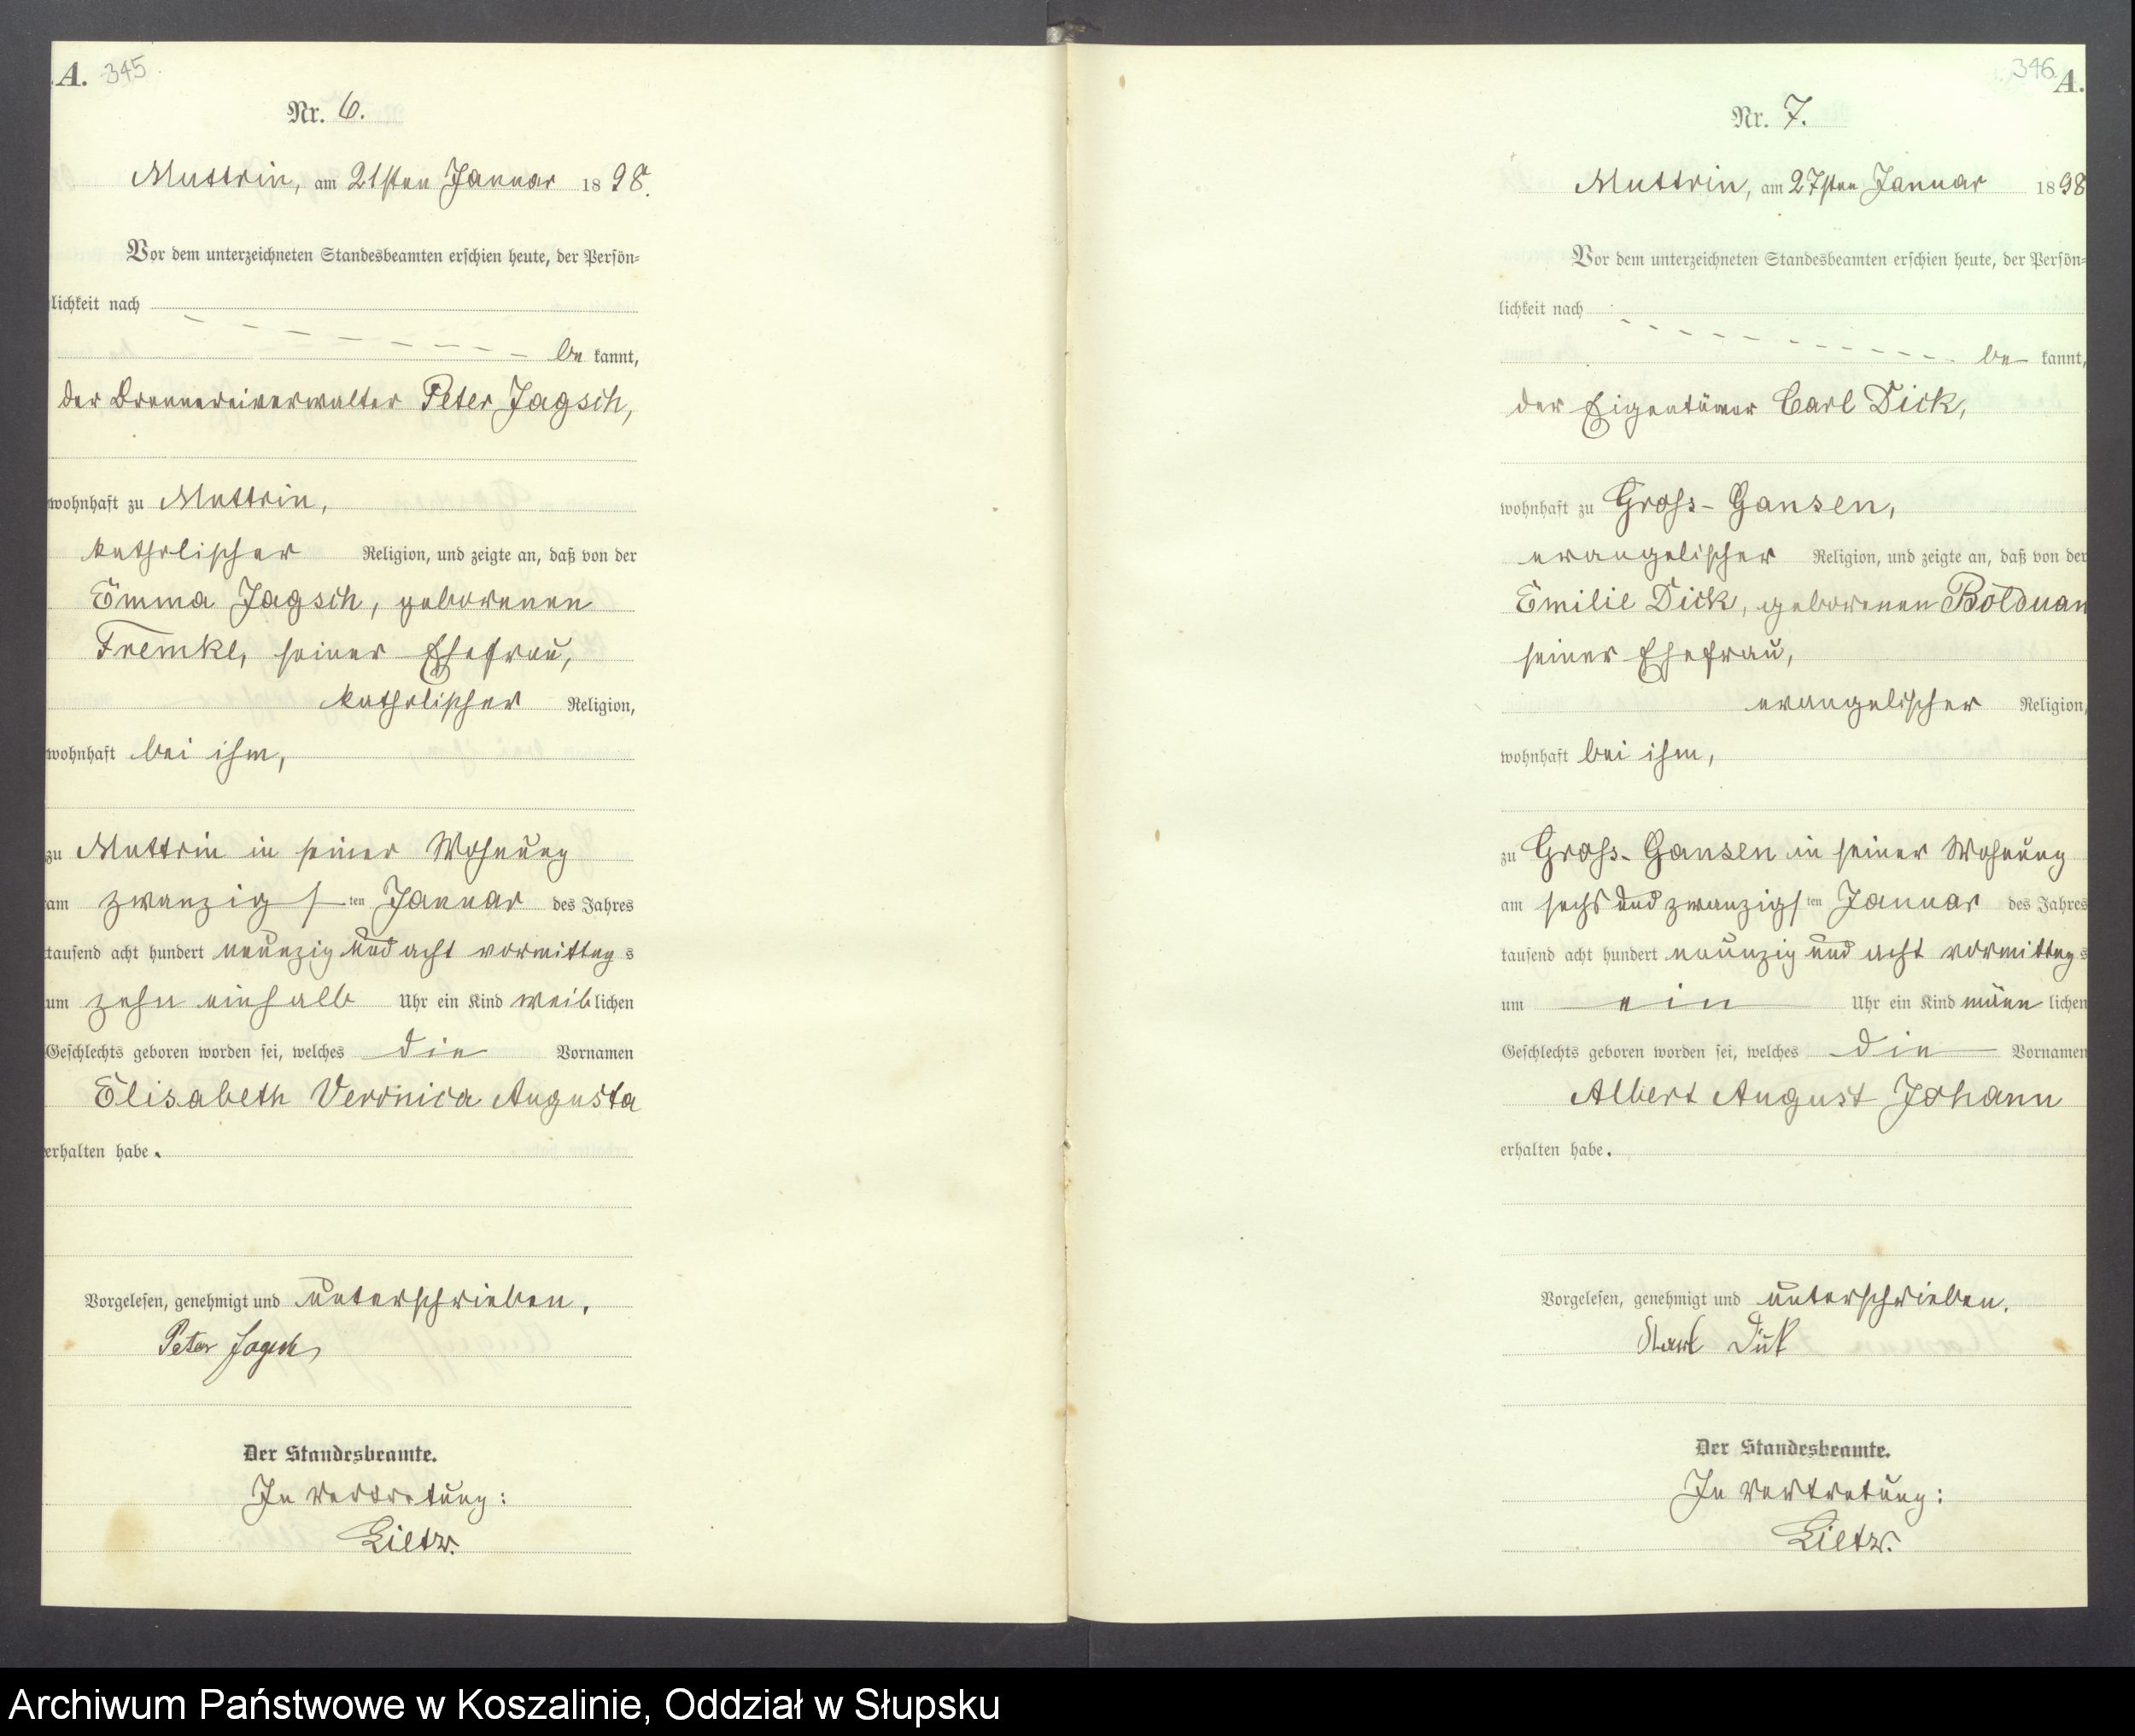 A. 345
Nr. 6.
Muttrin, am 21sten Januar 1898.
Vor dem unterzeichneten Standesbeamten erschien heute, der Persön-
lichkeit nach
be kannt,
der Brennereiverwalter Peter Jagsch,
wohnhaft zu Muttrin,
katholischer Religion, und zeigte an, daß von der
Emma Jagsch, geborenen
Tremkl, seiner Ehefrau,
katholischer Religion,
wohnhaft bei ihm,
zu Muttrin in seiner Wohnung
am zwanzigsten Januar des Jahres
tausend acht hundert neunzig und acht vormittags
um zehn einhalb Uhr ein Kind weiblichen
Geschlechts geboren worden sei, welches die Vornamen
Elisabeth Veronica Augusta
erhalten habe.
Vorgelesen, genehmigt und unterschrieben.
Peter Jagsch
Der Standesbeamte.
In Vertretung:
Lietz.
346 A.
Nr. 7.
Muttrin, am 27sten Januar 1898
Vor dem unterzeichneten Standesbeamten erschien heute, der Persön-
lichkeit nach
be kannt,
der Eigentümer Carl Dick,
wohnhaft zu Gross-Gansen,
evangelischer Religion, und zeigte an, daß von der
Emilie Dick, geborenen Bolduan
seiner Ehefrau,
evangelischer Religion,
wohnhaft bei ihm,
zu Gross-Gansen in seiner Wohnung
am sechs und zwanzigsten Januar des Jahres
tausend acht hundert neunzig und acht vormittags
um ein Uhr ein Kind männlichen
Geschlechts geboren worden sei, welches die Vornamen
Albert August Johann
erhalten habe.
Vorgelesen, genehmigt und unterschrieben.
Karl Dick
Der Standesbeamte.
In Vertretung:
Lietz.
Archiwum Państwowe w Koszalinie, Oddział w Słupsku